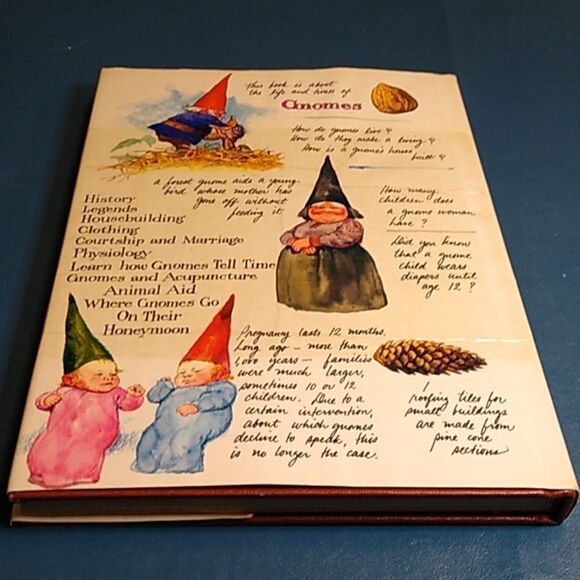 This book is about
the life and times of
Gnomes
How do gnomes live?
How do they make a living?
How is a gnome's house
built?
a forest gnome aids a young
bird whose mother has
gone off without
feeding it
History
Legends
Housebuilding
Clothing
Courtship and Marriage
Physiology
Learn how Gnomes Tell Time
Gnomes and Acupuncture
Animal Aid
Where Gnomes Go
On Their
Honeymoon
How many
children does
a gnome woman
have?
Did you know
that a gnome
child wears
diapers until
age 12?
Pregnancy lasts 12 months.
Long ago - more than
1,000 years - families
were much larger,
sometimes 10 or 12
children. Due to a
certain intervention,
about which gnomes
decline to speak, this
is no longer the case.
roofing tiles for
small buildings
are made from
pine cone
sections